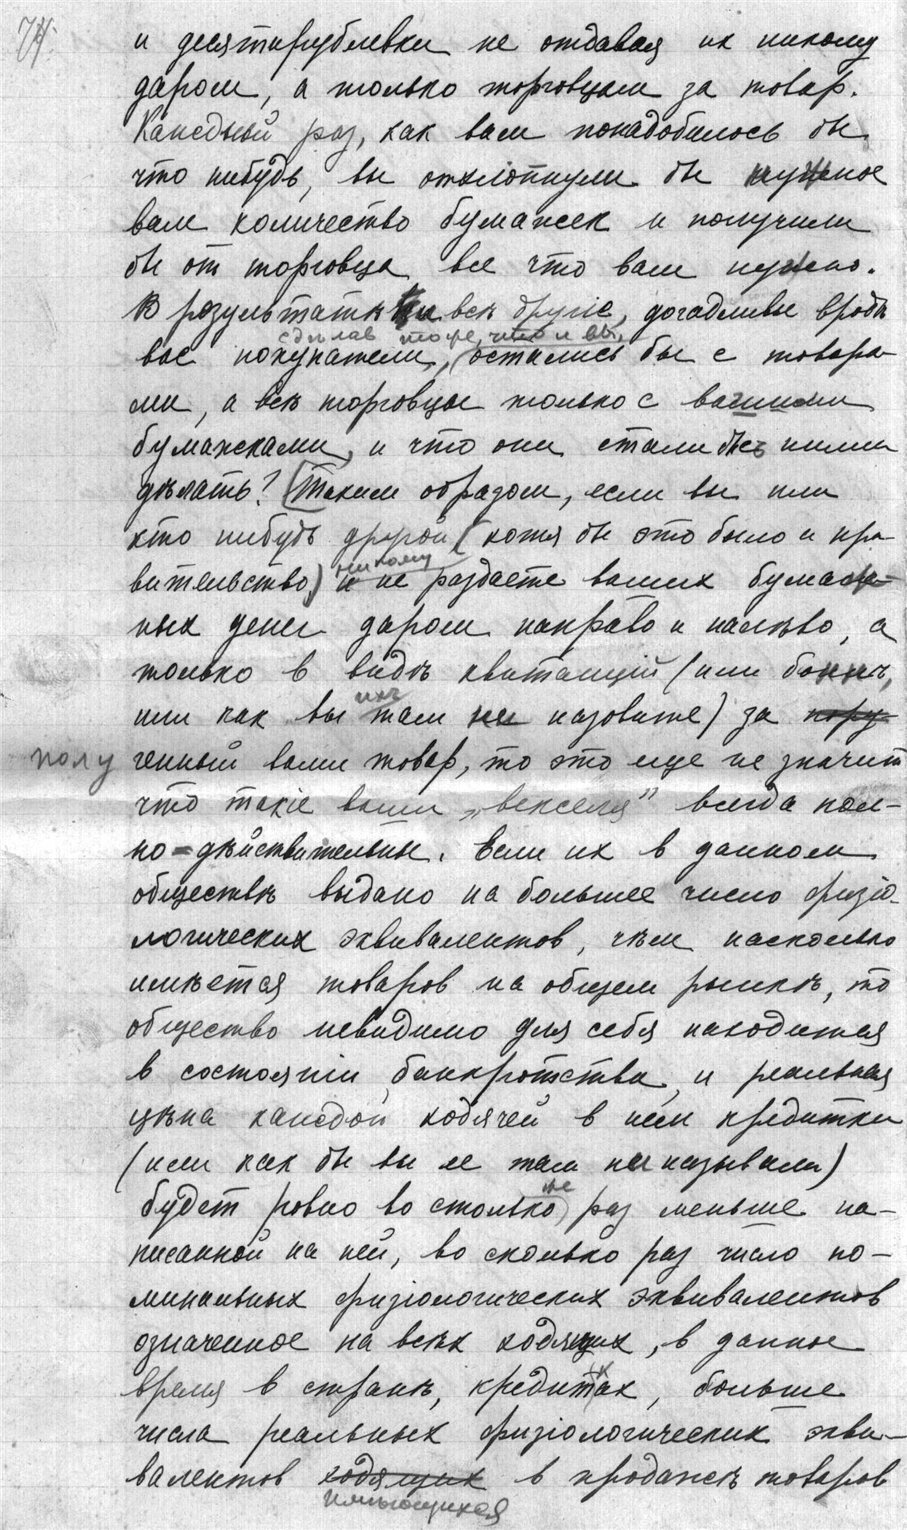 74.
и десятирублевки не отдавая их никому
даром, а только торговцам за товар.
Каждый раз, как вам понадобилось бы
что нибудь, вы отхлопнули бы нужное
вам количество бумажек и получили
бы от торговца все что вам нужно.
В результатѣ всѣ другіе, догадливы вродѣ
сдѣлав тоже, что и вы,
вас покупатели, остались бы с товара-
ми, а всѣ торговцы только с вашими
бумажками, и что они стали бы с ними
дѣлать? Таким образом, если вы или
кто нибудь другой (хотя бы это было и пра-
никому
вительство) и не раздаете ваших бумаж-
ных денег даром направо и налѣво, а
только в видѣ квитанцій (или бонн,
ихъ
или как вы там ни назовите) за
полу ченный вами товар, то это еще не значит
что такіе ваши „векселя" всегда пол-
но-дѣйствительны. Если их в данном
обществѣ выдано на большее число физіо-
логических эквивалентов, чѣм насколько
имѣется товаров на общем рынкѣ, то
общество невидимо для себя находится
в состояніи банкротства и реальная
цѣна каждой ходячей в нем кредитки
(или как бы вы ее там ни называли)
же
будет ровно во столько раз меньше на-
писанной на ней, во сколько раз число но-
минальных физіологических эквивалентов
означенное на всѣх ходящих, в данное
время в странѣ, кредитках, больше
числа реальных физіологических экви-
валентов ходящих в продажѣ товаров
имѣющихся